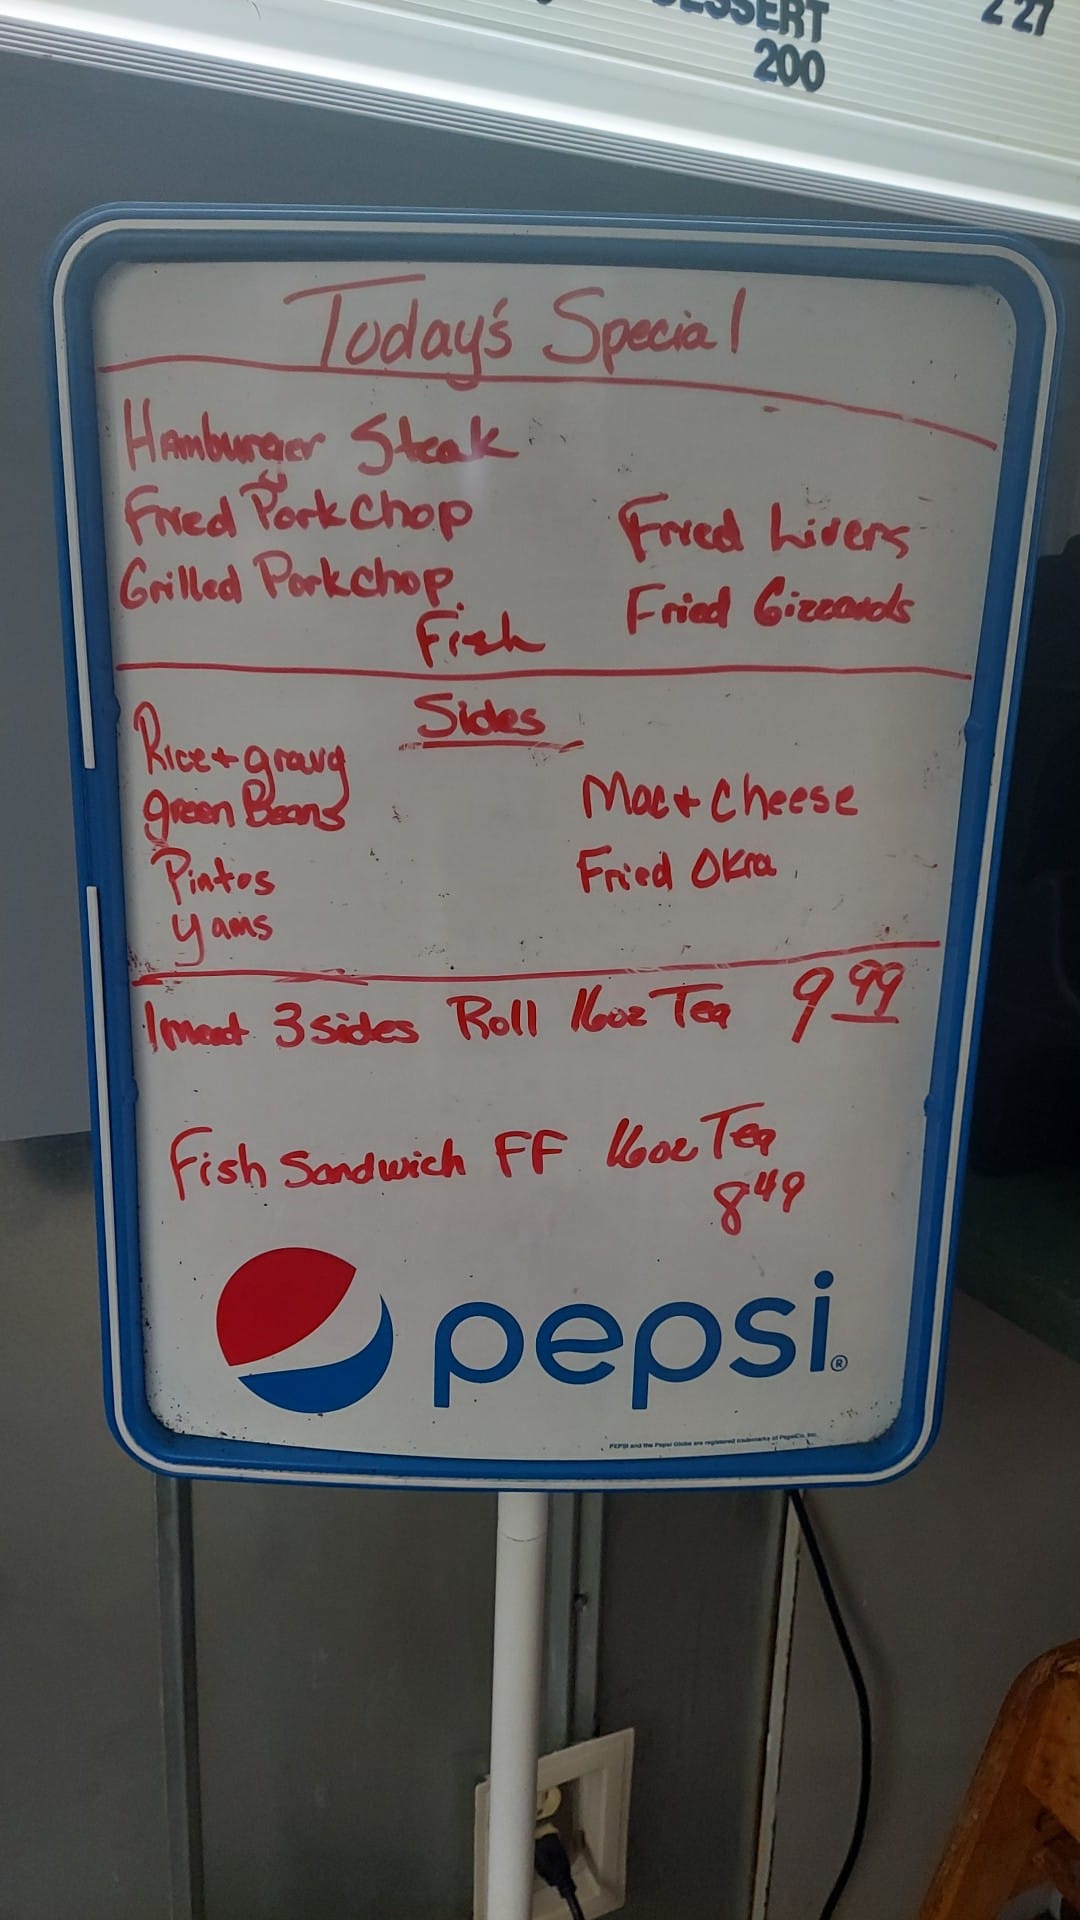 DESSERT 227
200
Today's Special
Hamburger Steak
Fried Pork Chop
Grilled Porkchop
Fried Livers
Fried Gizzards
Fish
Sides
Rice + gravy
green Beans
Pintos
yams
Mac + Cheese
Fried Okra
1 meat 3 sides Roll 16oz Tea 9 99
Fish Sandwich FF 16oz Tea
8 49
pepsi®
PEPSI and the Pepsi Globe are registered trademarks of PepsiCo, Inc.